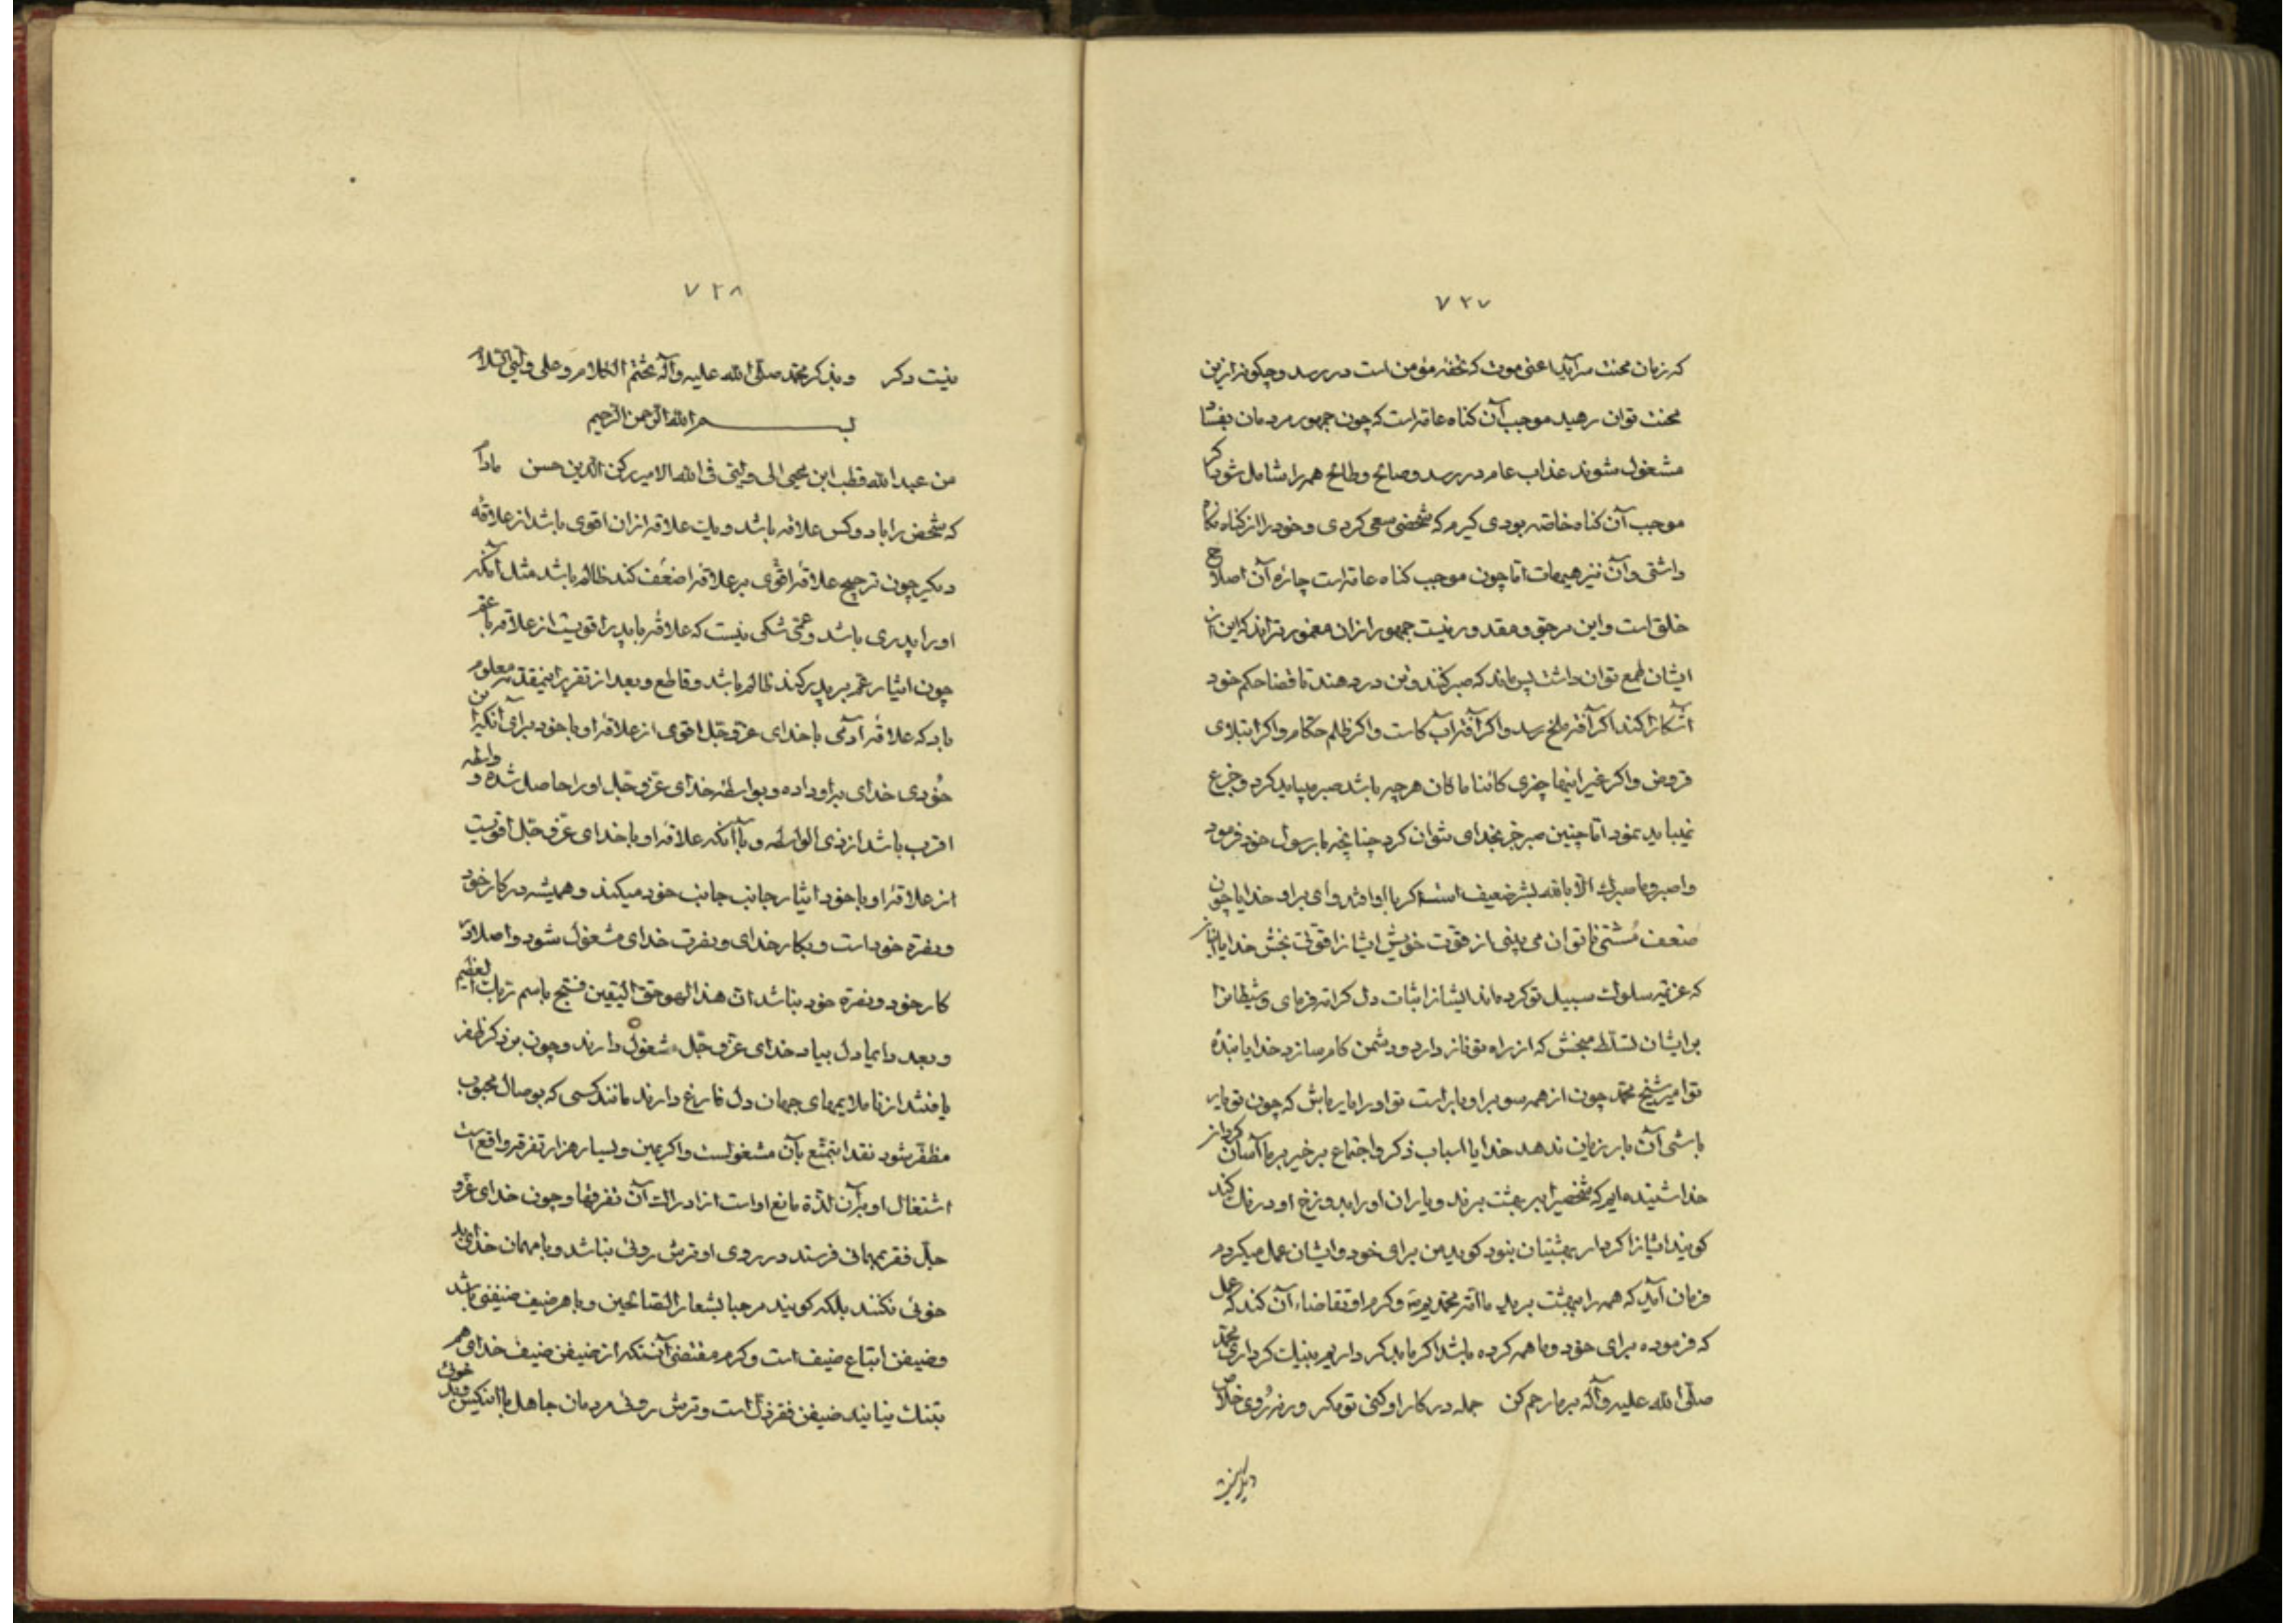 ۷۲۷
که زمان محنت سرآید اعنی موت که تحفه مؤمن است در رسد و چکونه ازین
محنت توان رهید موجب آن کناه عامه است که چون جمهور مردمان بفساد
مشغول شوند عذاب عام در رسد و صالح و طالح همه را شامل شود اکر
موجب آن کناه خاصه بودی کیرم که شخصی سعی کردی و خود را از کناه نکاه
داشتی و آن نیز هیهات اما چون موجب کناه عامه است چاره آن اصلاح
خلق است و این در حق و مقدور نیست جمهور ازان مغمورتراند که این از
ایشان طمع توان داشت پس ماند که صبر کنند و تن در دهند تا قضا حکم خود
آشکارا کند اکر آفة ملخ رسد و اکر آفة آب کاست و اکر ظلم حکام و اکر ابتلای
قروض و اکر غیر اینها چیزی کائنا ما کان هرچه باشد صبر میباید کرد و جزع
نمیباید نمود اما چنین صبر جز بخدای نتوان کرد چنانچه با رسول خود فرمود
واصبر وما صبرک الا بالله بشر ضعیف است اکر با او افتد وای بر او خدایا چون
ضعف مشتی ناتوان می بینی از قوت خویش ایشانرا قوت بخش خدایا آنانرا
که عزیمة سلوک سبیل تو کرده اند ایشانرا ثبات دل کرامة فرمای و شیطانرا
بر ایشان تسلط مبخش که از راه تو باز دارد و دشمن کام سازد خدایا بنده
تو امیر شیخ محمد چون از همه سو بر او بار است تو او را یار باش که چون تو یار
باشی آن بار زیان ندهد خدایا اسباب ذکر و اجتماع بر خیر بر ما آسان کردان
خدا شنیده ایم که شخصیرا ببر بهشت برند و یاران او را بدوزخ او درنک کند
کویند ایشانرا کردار بهشتیان نبود کوید من برای خود و ایشان عمل میکردم
فرمان آید که همه را ببهشت برید ما امة محمدیم و کرم او تقاضاء آن کند که عمل
که فرموده برای خود و ما همه کرده باشد اکر ما بد کرداریم بنیک کرداری محمد
صلی الله علیه وآله بر ما رحم کن جمله در کار او کنی تو مکر ورنه روی خلاص
دیکر نیست
۷۲۸
نیست دکر وبذکر محمد صلی الله علیه وآله نختم الکلام وعلی ولیی السلام
بسم الله الرحمن الرحیم
من عبد الله قطب ابن محیی الی ولیی فی الله الامیر رکن الدین حسن مادام
که شخص را با دو کس علاقه باشد و یک علاقه ازان اقوی باشد از علاقه
دیکر چون ترجیح علاقه اقوی بر علاقه اضعف کند ظالم باشد مثل آنکه
او را پدری باشد و عمی شکی نیست که علاقه با پدر اقویست از علاقه با عم
چون ایثار عم بر پدر کند ظالم باشد و قاطع و بعد از تقریر اینمقدمه معلوم
باد که علاقه آدمی با خدای عز و جل اقوی از علاقه او با خود برای آنکه این
خودی خدای بر او داده و بواسطه خدای عز و جل او را حاصل شده و واسطه
اقرب باشد از ذی الواسطه و با آنکه علاقه او با خدای عز و جل اقویست
از علاقه او با خود ایثار جانب جانب خود میکند و همیشه در کار خود
و نصرة خود است و بکار خدای و نصرت خدای مشغول شود و اصلا در
کار خود و نصرة خود نباشد ان هذا لهو حق الیقین فسبح باسم ربک العظیم
و بعد دایما دل بیاد خدای عز و جل مشغول دارند و چون بر ذکر ظفر
یافتند از ناملایمهای جهان دل فارغ دارند مانند کسی که بوصال محبوب
مظفر شود نقدا بتمتع بآن مشغولست و اکر یمین و یسار هزار تفرقه واقع است
اشتغال او بر آن لذة مانع او است از ادراک آن تفرقها و چون خدای عز و
جل فقر بمهمانی فرستد در روی او ترش روئی نباشد و با مهمان خدای بد
خوئی نکنند بلکه کویند مرحبا بشعار الصالحین و با هر ضیف ضیفنی باشد
و ضیفن اتباع ضیف است و کرم مقتضی آنکه از ضیفن ضیف خدای هم
بتنک نیایند ضیفن فقر ذل است و ترش روئی مردمان جاهل با اینکس و بد خوئی